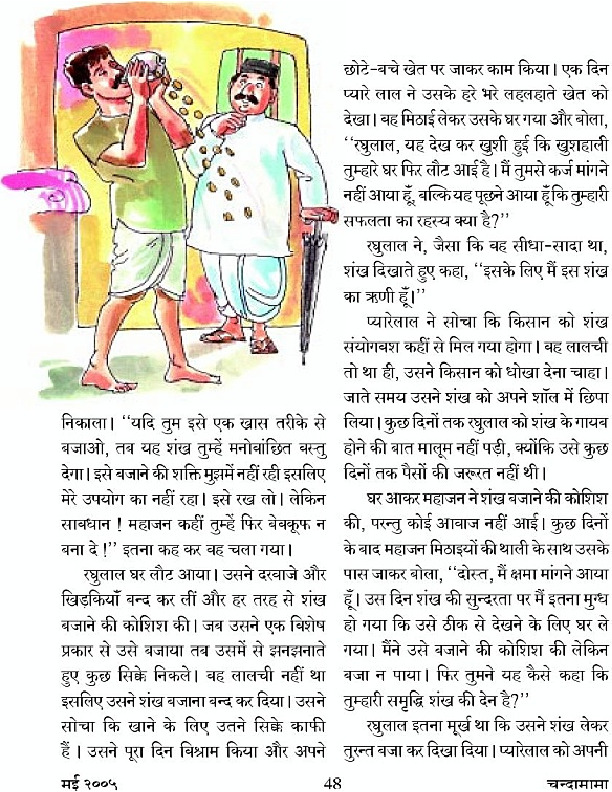 निकाला। ‘‘यदि तुम इसे एक खास तरीके से
बजाओ, तब यह शंख तुम्हें मनोवांछित वस्तु
देगा। इसे बजाने की शक्ति मुझमें नहीं रही इसलिए
मेरे उपयोग का नहीं रहा। इसे रख लो। लेकिन
सावधान ! महाजन कहीं तुम्हें फिर बेवकूफ न
बना दे !’’ इतना कह कर वह चला गया।
रघुलाल घर लौट आया। उसने दरवाजे और
खिड़कियाँ बन्द कर लीं और हर तरह से शंख
बजाने की कोशिश की। जब उसने एक विशेष
प्रकार से उसे बजाया तब उसमें से झनझनाते
हुए कुछ सिक्के निकले। वह लालची नहीं था
इसलिए उसने शंख बजाना बन्द कर दिया। उसने
सोचा कि खाने के लिए उतने सिक्के काफी
हैं । उसने पूरा दिन विश्राम किया और अपने
छोटे-बचे खेत पर जाकर काम किया। एक दिन
प्यारे लाल ने उसके हरे भरे लहलहाते खेत को
देखा। वह मिठाई लेकर उसके घर गया और बोला,
‘‘रघुलाल, यह देख कर खुशी हुई कि खुशहाली
तुम्हारे घर फिर लौट आई है। मैं तुमसे कर्ज मांगने
नहीं आया हूँ, बल्कि यह पूछने आया हूँ कि तुम्हारी
सफलता का रहस्य क्या है?’’
रघुलाल ने, जैसा कि वह सीधा-सादा था,
शंख दिखाते हुए कहा, ‘‘इसके लिए मैं इस शंख
का ऋणी हूँ।’’
प्यारेलाल ने सोचा कि किसान को शंख
संयोगवश कहीं से मिल गया होगा। वह लालची
तो था ही, उसने किसान को धोखा देना चाहा।
जाते समय उसने शंख को अपने शॉल में छिपा
लिया। कुछ दिनों तक रघुलाल को शंख के गायब
होने की बात मालूम नहीं पड़ी, क्योंकि उसे कुछ
दिनों तक पैसों की जरूरत नहीं थी।
घर आकर महाजन ने शंख बजाने की कोशिश
की, परन्तु कोई आवाज नहीं आई। कुछ दिनों
के बाद महाजन मिठाइयों की थाली के साथ उसके
पास जाकर बोला, ‘‘दोस्त, मैं क्षमा मांगने आया
हूँ। उस दिन शंख की सुन्दरता पर मैं इतना मुग्ध
हो गया कि उसे ठीक से देखने के लिए घर ले
गया। मैंने उसे बजाने की कोशिश की लेकिन
बजा न पाया। फिर तुमने यह कैसे कहा कि
तुम्हारी समृद्धि शंख की देन है?’’
रघुलाल इतना मूर्ख था कि उसने शंख लेकर
तुरन्त बजा कर दिखा दिया। प्यारेलाल को अपनी
मई २००५
48
चन्दामामा